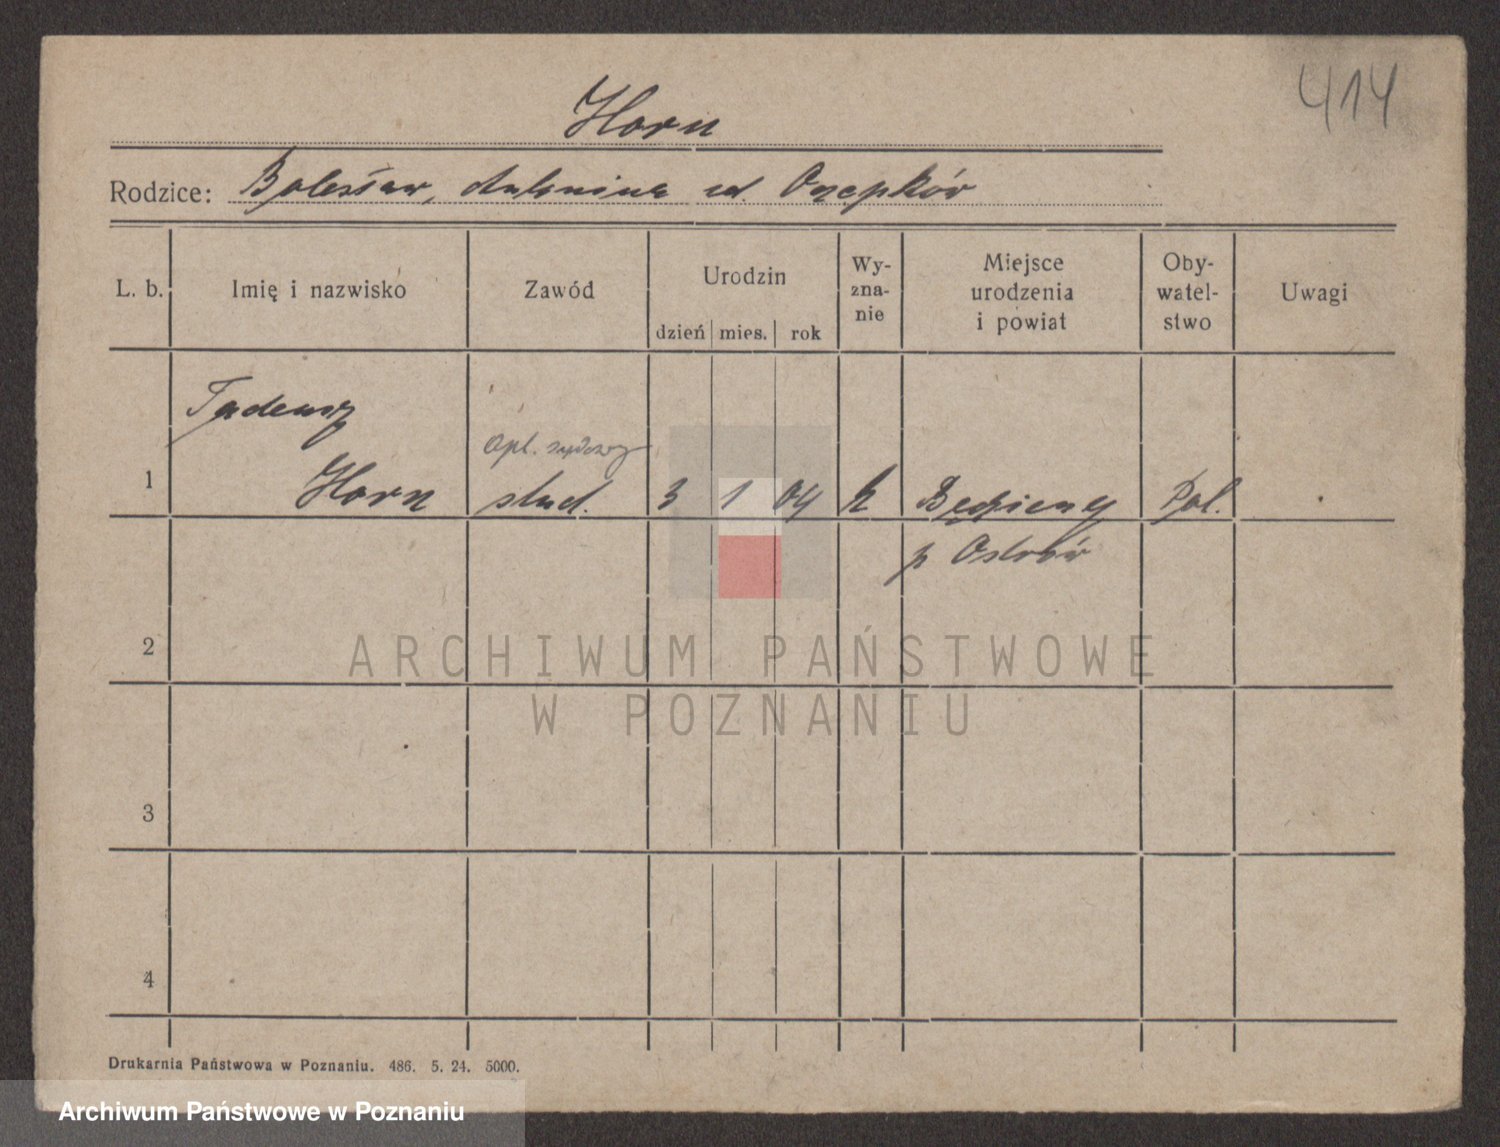 414
Horn
Rodzice: Bolesław, Antonina ur. Orzepków
L. b. Imię i nazwisko Zawód Urodzin dzień mies. rok Wy-zna-nie Miejsce urodzenia i powiat Oby-watel-stwo Uwagi
Tadeusz
Apl. sądowy
1 Horn stud. 3 1 04 k Będzieszyn Pol.
p Ostrów
2
ARCHIWUM PAŃSTWOWE
W POZNANIU
3
4
Drukarnia Państwowa w Poznaniu. 486. 5. 24. 5000.
Archiwum Państwowe w Poznaniu